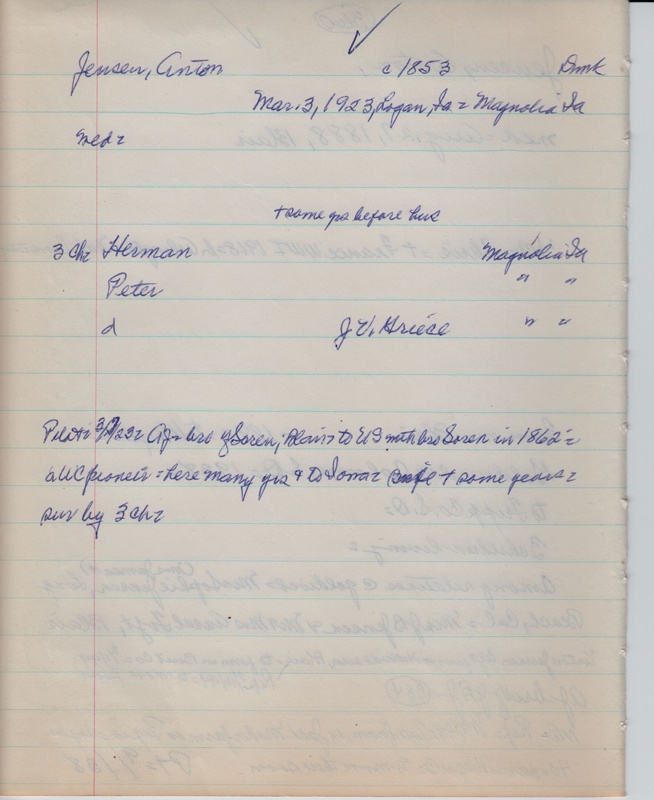 Jensen, Anton c 1853 Dmk
Mar. 3, 1923, Logan, Ia = Magnolia Ia
med=
+ some yrs before hus
3 ch= Herman Magnolia Ia
Peter " "
d J V. " "
Pilot= 3/7/23= bro of Soren, Blair= to US with bro Soren in 1862=
a WC pioneer = here many yrs & to Iowa= wife + some years=
sur by 3 ch=